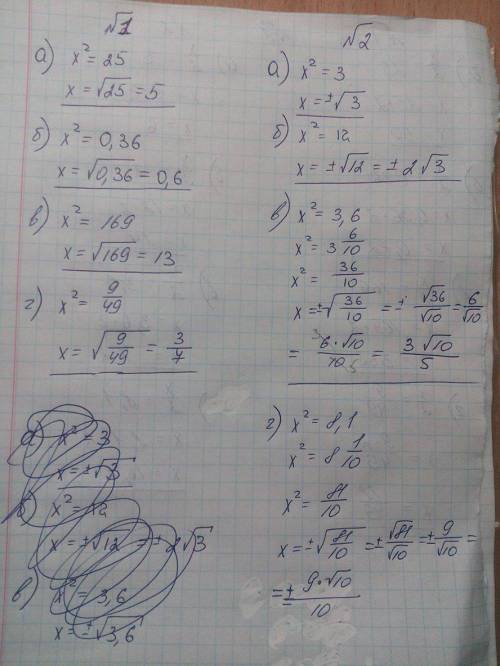 √1
а) x² = 25
x = √25 = 5
б) x² = 0,36
x = √0,36 = 0,6
в) x² = 169
x = √169 = 13
г) x² = 9/49
x = √(9/49) = 3/7
а) x² = 3
x = ±√3
б) x² = 12
x = ±√12 = ±2√3
в) x² = 3,6
x = ±√3,6
√2
а) x² = 3
x = ±√3
б) x² = 12
x = ±√12 = ±2√3
в) x² = 3,6
x² = 3 6/10
x² = 36/10
x = ±√(36/10) = ± √36/√10 = 6/√10
= 6·√10/10 = 3√10/5
г) x² = 8,1
x² = 8 1/10
x² = 81/10
x = ±√(81/10) = ± √81/√10 = ± 9/√10 =
= ± 9·√10/10